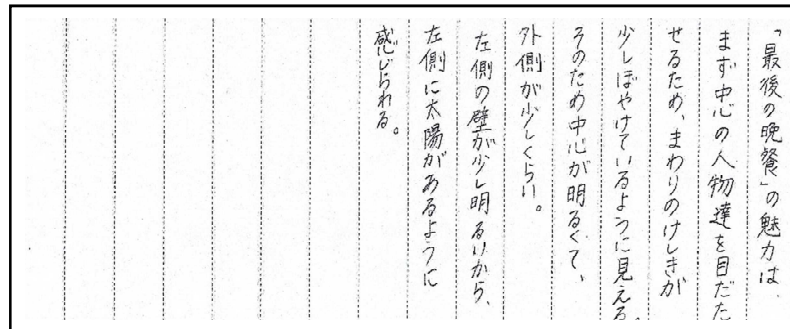 「最後の晩餐」の魅力は、
まず中心の人物達を目だた
せるため、まわりのけしきが
少しぼやけているように見える。
そのため中心が明るくて、
外側が少しくらい。
左側の壁が少し明るいから、
左側に太陽があるように
感じられる。